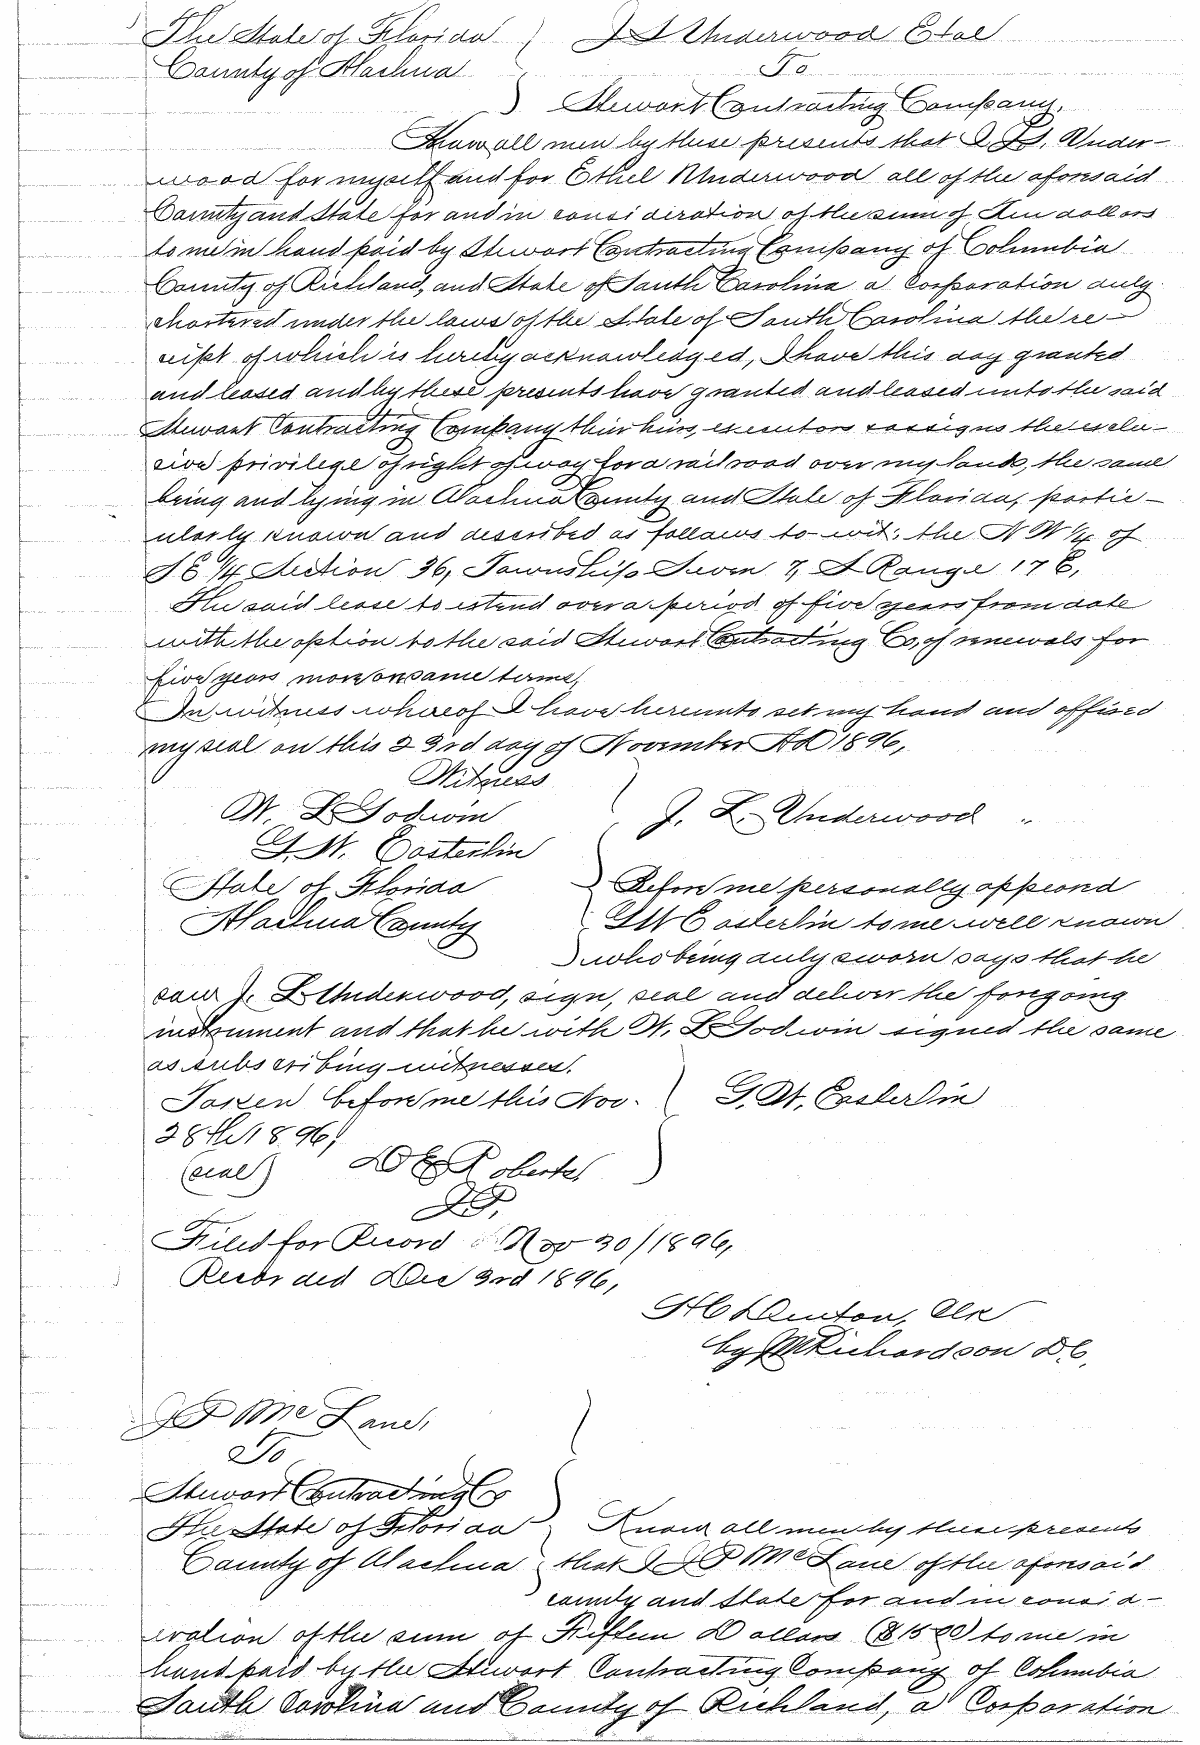 The State of Florida } J L Underwood Etal
County of Alachua To
Stewart Contracting Company,
Know all men by these presents that I J L. Under-
wood for myself and for Ethel Underwood all of the aforesaid
County and State for and in consideration of the sum of Ten dollars
to me in hand paid by Stewart Contracting Company of Columbia
County of Richland, and State of South Carolina a Corporation duly
chartered under the laws of the State of South Carolina the re-
ceipt of which is hereby acknowledged, I have this day granted
and leased and by these presents have granted and leased unto the said
Stewart Contracting Company their heirs, executors & assigns the exclu-
sive privilege of right of way for a railroad over my lands, the same
being and lying in Alachua County and State of Florida, partic-
ularly known and described as follows to-wit: the NW 1/4 of
SE 1/4 Section 36, Township Seven 7, S Range 17 E,
The said lease to extend over a period of five years from date
with the option to the said Stewart Contracting Co, of renewals for
five years more on same terms,
In witness whereof I have hereunto set my hand and affixed
my seal on this 23rd day of November AD 1896,
Witness
W. L Godwin J. L. Underwood "
G. W. Easterlin
State of Florida Before me personally appeard
Alachua County GW Easterlin to me well known
who being duly sworn says that he
saw J. L Underwood, sign, seal and deliver the foregoing
instrument and that he with W. L Godwin signed the same
as subscribing witnesses.
Taken before me this Nov. G. W. Easterlin
28th 1896,
(seal) D E Roberts,
J P.
Filed for Record Nov 30/1896,
Recorded Dec 3rd 1896,
H C Denton, Clk
by M Richardson D.C,
J P Mc Lane,
To
Stewart Contracting Co
The State of Florida Know all men by these presents
County of Alachua that I J P McLane of the aforesaid
county and State for and in consid-
eration of the sum of Fifteen Dollars ($15.00) to me in
hand paid by the Stewart Contracting Company of Columbia
South Carolina and County of Richland, a Corporation